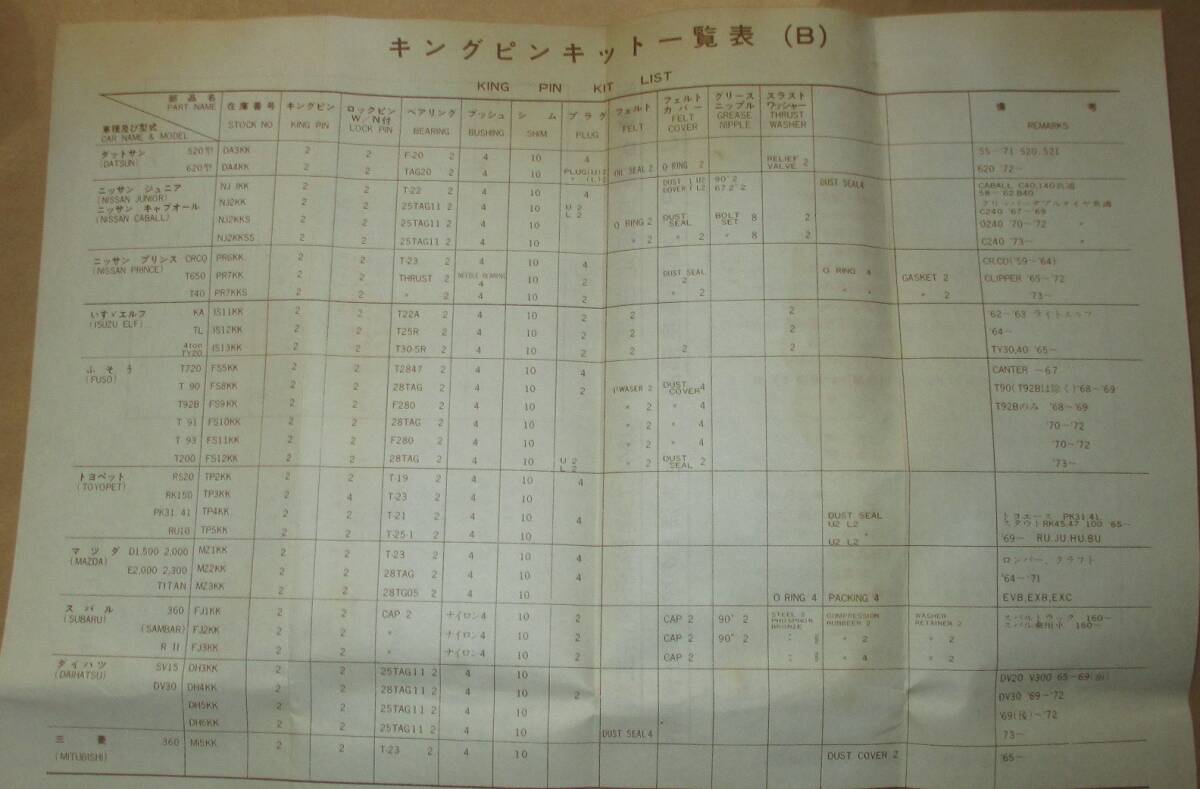 キングピンキット一覧表 (B)
KING PIN KIT LIST
部品名 PART NAME 車種及び型式 CAR NAME & MODEL 在庫番号 STOCK NO キングピン KING PIN ロックピン W/N付 LOCK PIN ベアリング BEARING ブッシュ BUSHING シム SHIM プラグ PLUG フェルト FELT フェルトカバー FELT COVER グリースニップル GREASE NIPPLE スラストワッシャー THRUST WASHER 備考 REMARKS
ダットサン (DATSUN) 520型 DA3KK 2 2 F-20 2 4 10 4 O RING 2 RELIEF VALVE 2 55~'71 520, 521
620型 DA4KK 2 2 TAG20 2 4 10 PLUG(U)2 〃 (L)2 OIL SEAL 2 620 '72~
ニッサン ジュニア (NISSAN JUNIOR) NJ1KK 2 2 T-22 2 4 10 4 DUST U2 COVER L2 90°2 67.2°2 DUST SEAL4 CABALL C40,140共通 58~'62 B40
ニッサン キャブオール (NISSAN CABALL) NJ2KK 2 2 25TAG11 2 4 10 U 2 L 2 C240 '67~'69
NJ2KKS 2 2 25TAG11 2 4 10 O RING 2 DUST SEAL BOLT SET 8 2 C240 '70~'72 〃
NJ2KKSS 2 2 25TAG11 2 4 10 〃 2 〃 2 〃 8 2 C240 '73~ 〃
ニッサン プリンス (NISSAN PRINCE) CRCD PR6KK 2 2 T-23 2 4 10 4 CR,CD('59~'64)
T650 PR7KK 2 2 THRUST 2 NEEDLE BEARING 4 10 2 DUST SEAL 2 O RING 4 GASKET 2 CLIPPER '65~'72
T40 PR7KKS 2 2 〃 2 4 10 2 〃 2 〃 〃 〃 2 '73~
いすゞエルフ (ISUZU ELF) KA IS11KK 2 2 T22A 2 4 10 2 2 2 '62~'63 ライトエルフ
TL IS12KK 2 2 T25R 2 4 10 2 2 2 '64~
4ton TY20 IS13KK 2 2 T30-5R 2 4 10 2 2 2 2 TY30,40 '65~
ふそう (FUSO) T720 FS5KK 2 2 T2847 2 4 10 4 CANTER ~67
T 90 FS8KK 2 2 28TAG 2 4 10 2 WASER 2 DUST COVER 4 T90(T92Bは除く)'68~'69
T92B FS9KK 2 2 F280 2 4 10 〃 2 〃 4 T92Bのみ '68~'69
T 91 FS10KK 2 2 28TAG 2 4 10 〃 2 〃 4 '70~'72
T 93 FS11KK 2 2 F280 2 4 10 〃 2 〃 4 '70~'72
T200 FS12KK 2 2 28TAG 2 4 10 U 2 L 2 〃 2 DUST SEAL 2 '73~
トヨペット (TOYOPET) RS20 TP2KK 2 2 T-19 2 4 10 4
RK150 TP3KK 2 4 T-23 2 4 10
PK31.41 TP4KK 2 2 T-21 2 4 10 4 DUST SEAL U2 L2 トヨエース PK31,41, スタウトRK45,47 100 '65~
RU10 TP5KK 2 2 T-25-1 2 4 10 〃 U2 L2 '69~ RU.JU.HU.BU
マツダ (MAZDA) D1,500 2,000 MZ1KK 2 2 T-23 2 4 10 4 ロンパー、クラフト
E2,000 2,300 MZ2KK 2 2 28TAG 2 4 10 4 '64~'71
TITAN MZ3KK 2 2 28TG05 2 4 10 O RING 4 PACKING 4 EVB,EXB,EXC
スバル (SUBARU) 360 FJ1KK 2 2 CAP 2 ナイロン4 10 2 CAP 2 90° 2 STEEL 2 PHOSPHOR BRONZE COMPRESSION RUBBEER 2 WASHER RETAINER 2 スバルトラック 160~ スバル乗用車 160~
(SAMBAR) FJ2KK 2 2 〃 ナイロン4 10 2 CAP 2 90° 2 〃 2 〃 2
R II FJ3KK 2 2 〃 ナイロン4 10 2 CAP 2 〃 4 〃 2
ダイハツ (DAIHATSU) SV15 DH3KK 2 2 25TAG11 2 4 10 DV20 V300 65~69(前)
DV30 DH4KK 2 2 28TAG11 2 4 10 2 DV30 '69~'72
DH5KK 2 2 25TAG11 2 4 10 '69(後)~'72
DH6KK 2 2 25TAG11 2 4 10 DUST SEAL 4 73~
三菱 (MITUBISHI) 360 Mi5KK 2 2 T-23 2 4 10 DUST COVER 2 '65~